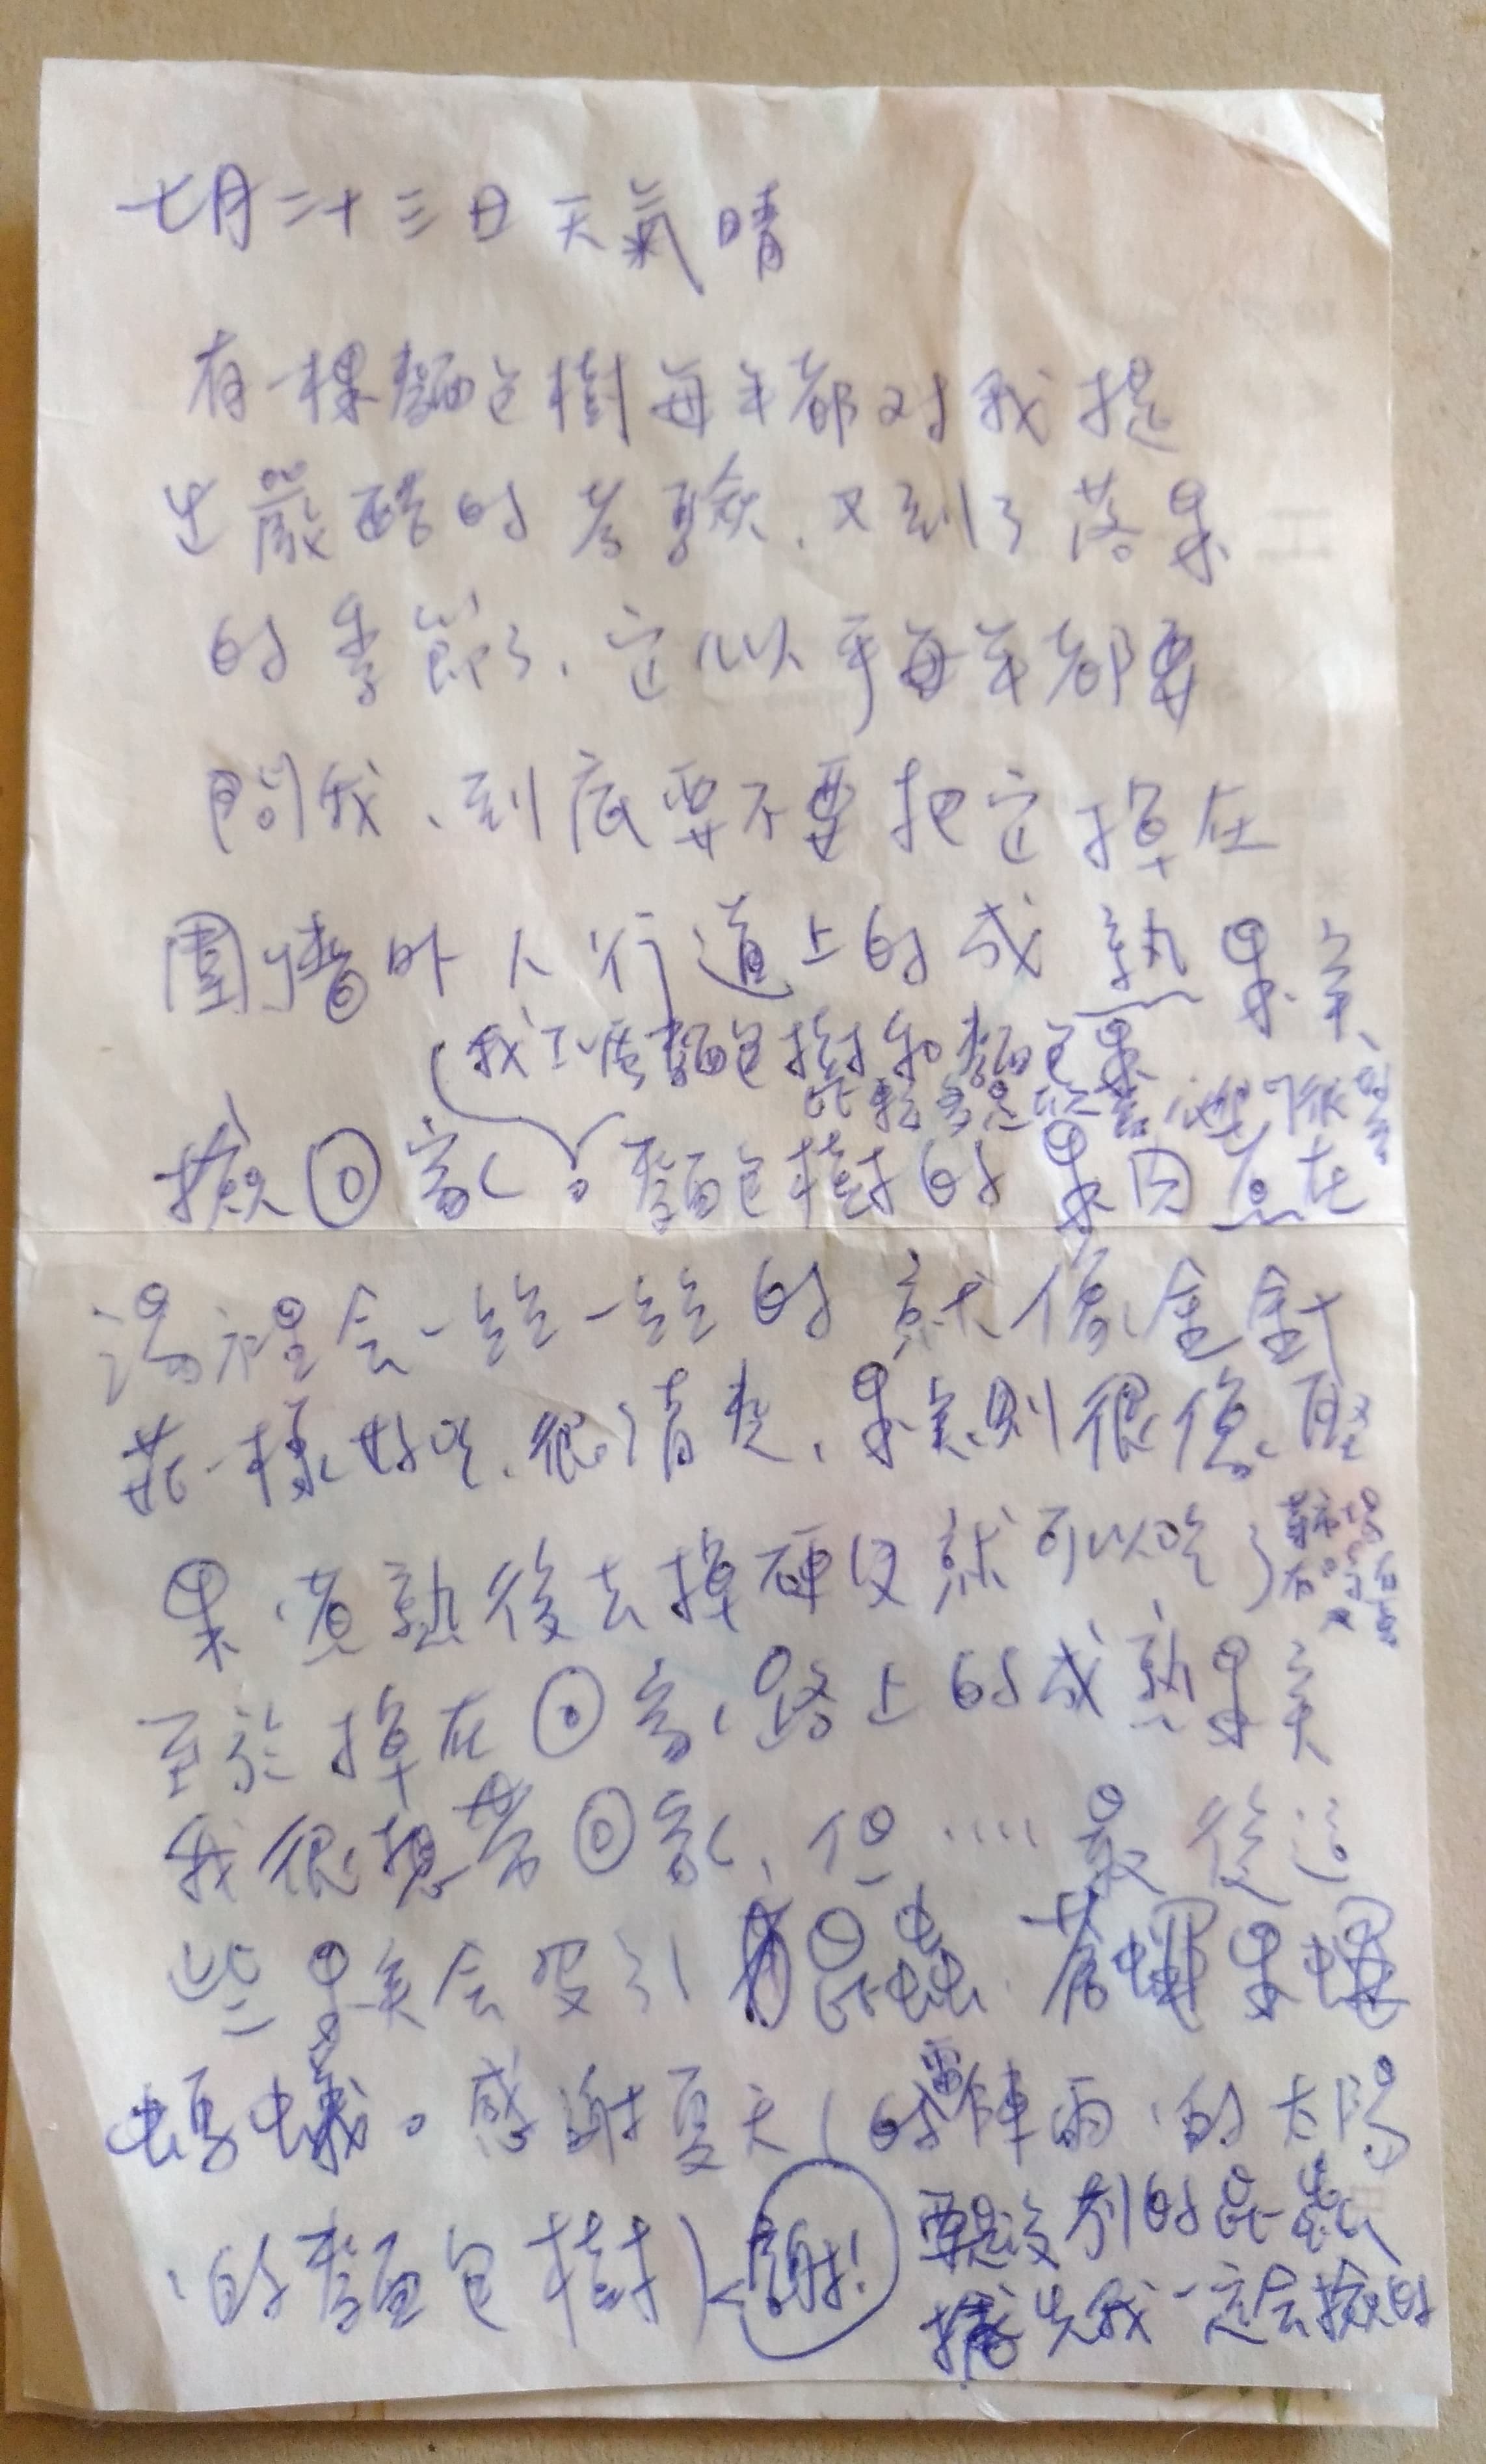 七月二十三日 天氣晴
有一棵麵包樹每年都对我提
出嚴酷的考驗、又到了落果
的季節了、它似乎每年都要
問我、到底要不要把它掉在
圍牆外人行道上的成熟果実、
(我不{麵包樹和麵包果
比較 他們很
撿回家。麵包樹的果肉煮在
湯裡会一絲一絲的就像金針
花一樣好吃、很清爽、果実則很像堅
果、煮熟後去掉硬皮就可以吃了
至於掉在回家路上的成熟果実
我很想帶回家、但……最後這
些果実会吸引昆蟲、蒼蠅果蠅
螞蟻。感謝夏天(的雷陣雨、的太陽
、的麵包樹) 謝!
要是沒別的昆蟲
搶先我一定会撿的